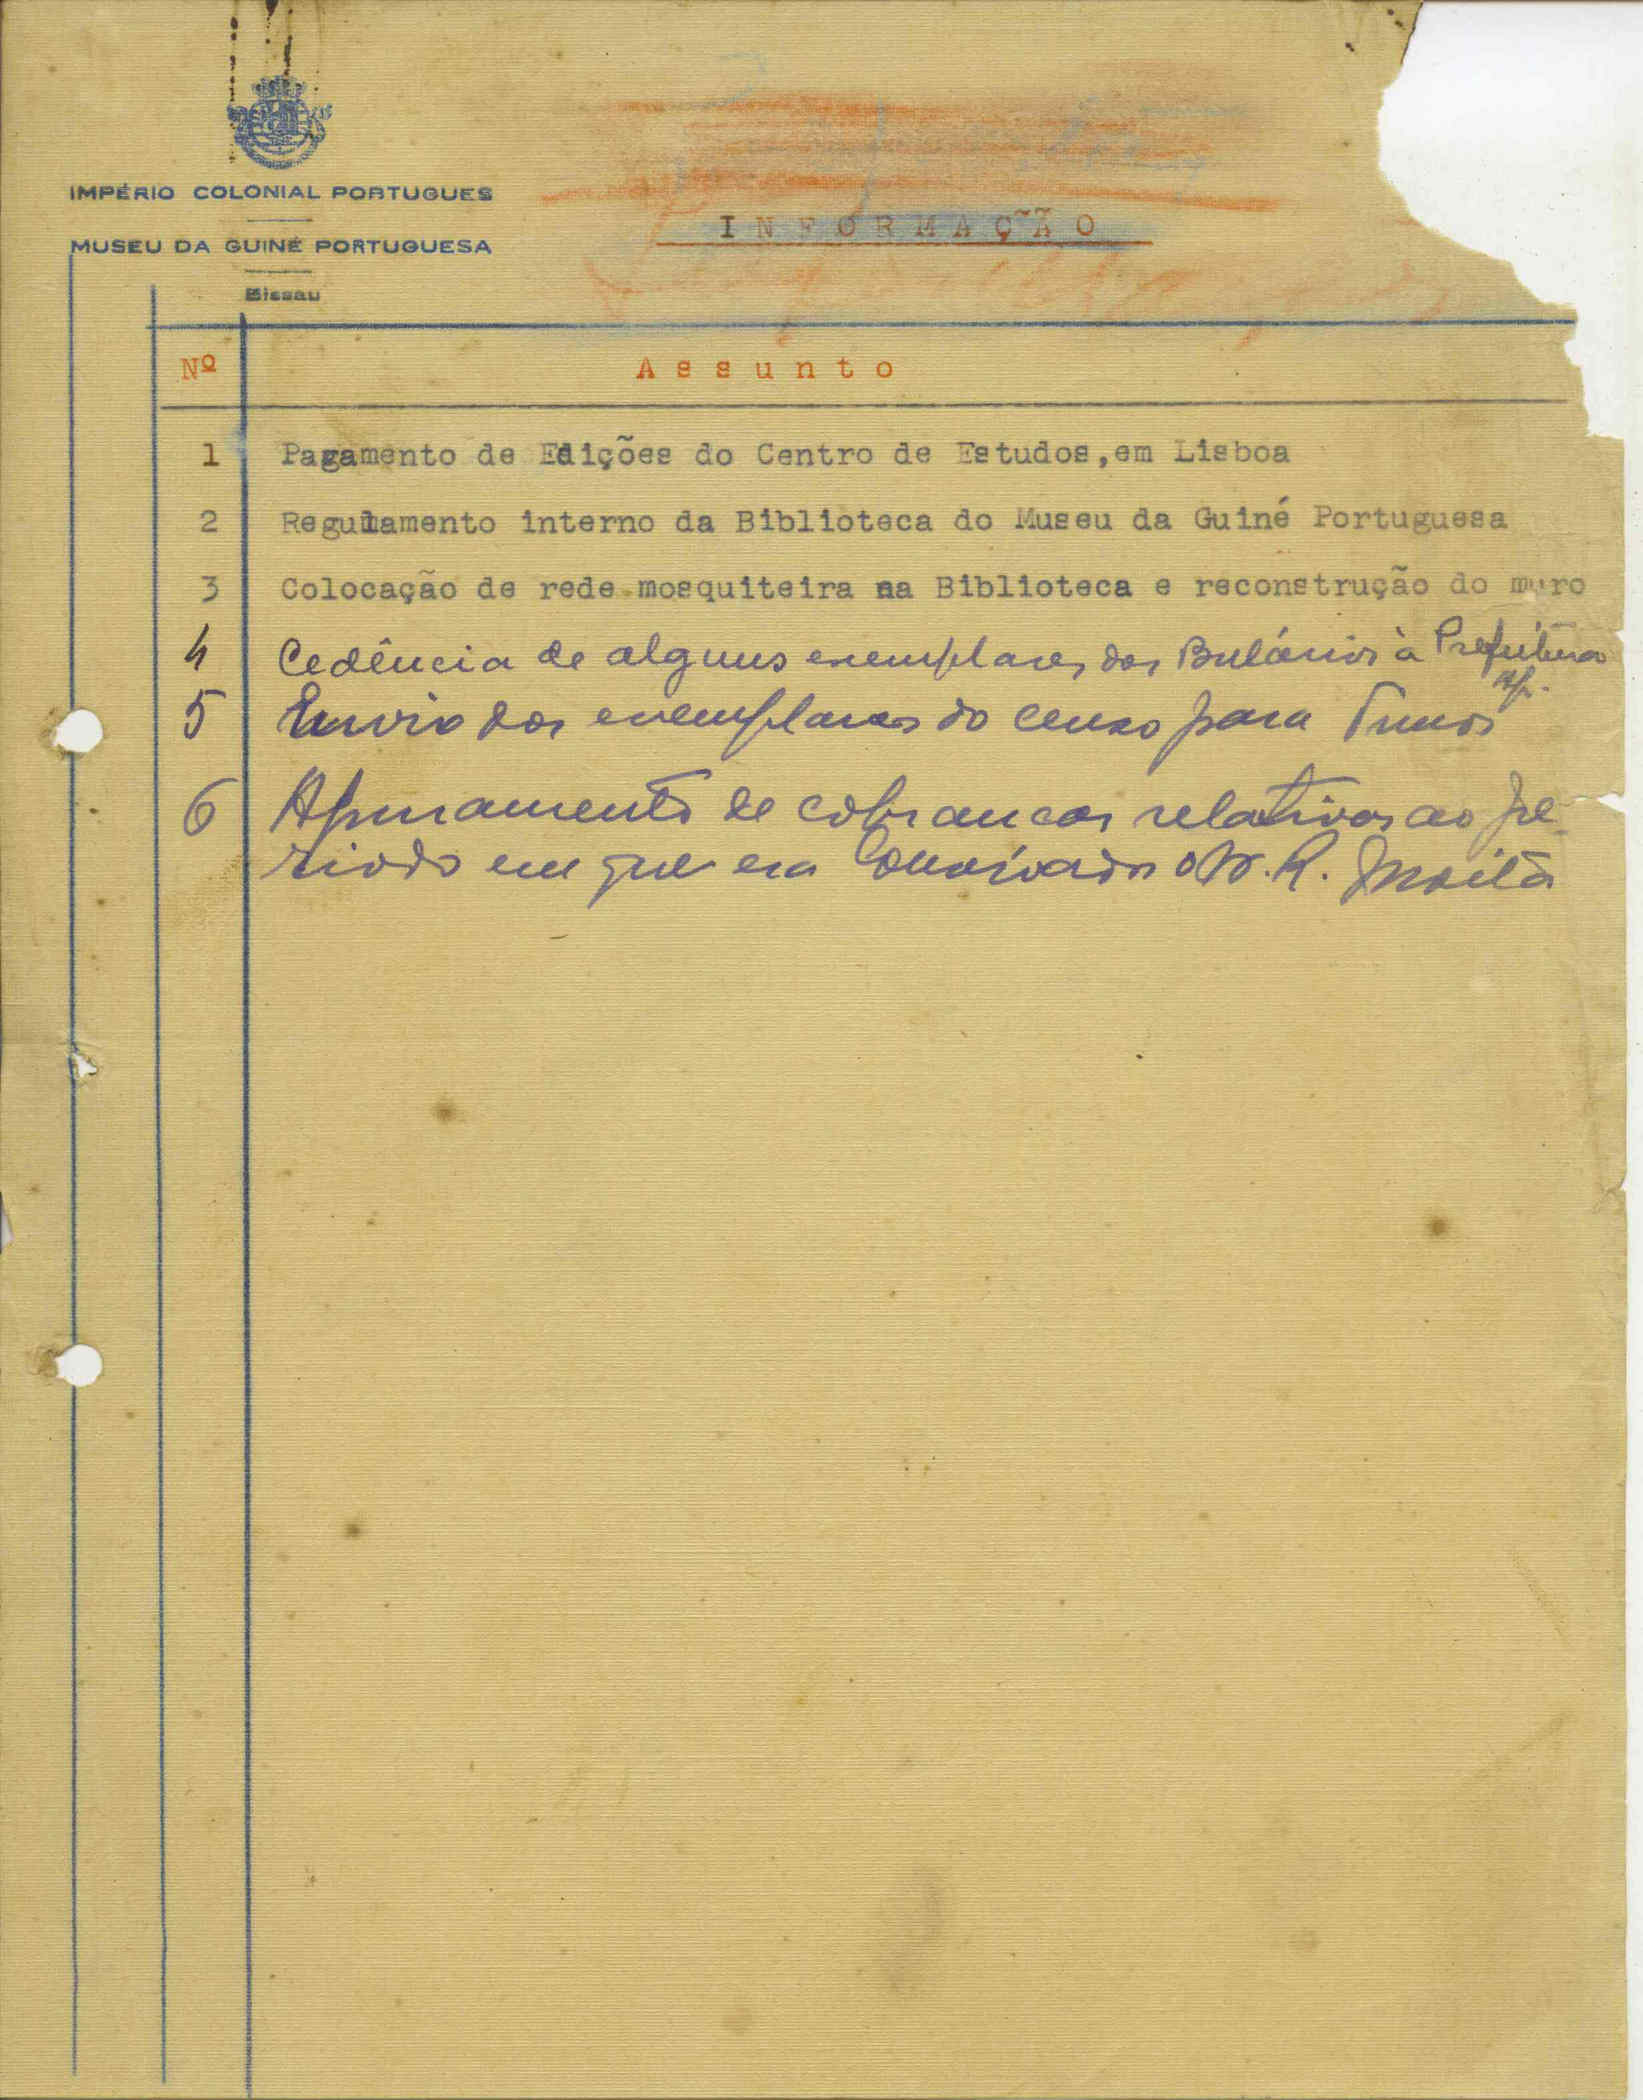 IMPÉRIO COLONIAL PORTUGUES
MUSEU DA GUINÉ PORTUGUESA
Bissau
INFORMAÇÃO
Nº Assunto
1 Pagamento de Edições do Centro de Estudos, em Lisboa
2 Regulamento interno da Biblioteca do Museu da Guiné Portuguesa
3 Colocação de rede mosquiteira na Biblioteca e reconstrução do muro
4 Cedência de alguns exemplares dos à Prefeitura
Ap.
5 Envio dos exemplares do censo para
6 Apuramento de cobranças relativas ao pe-
riodo em que era o R. Moita